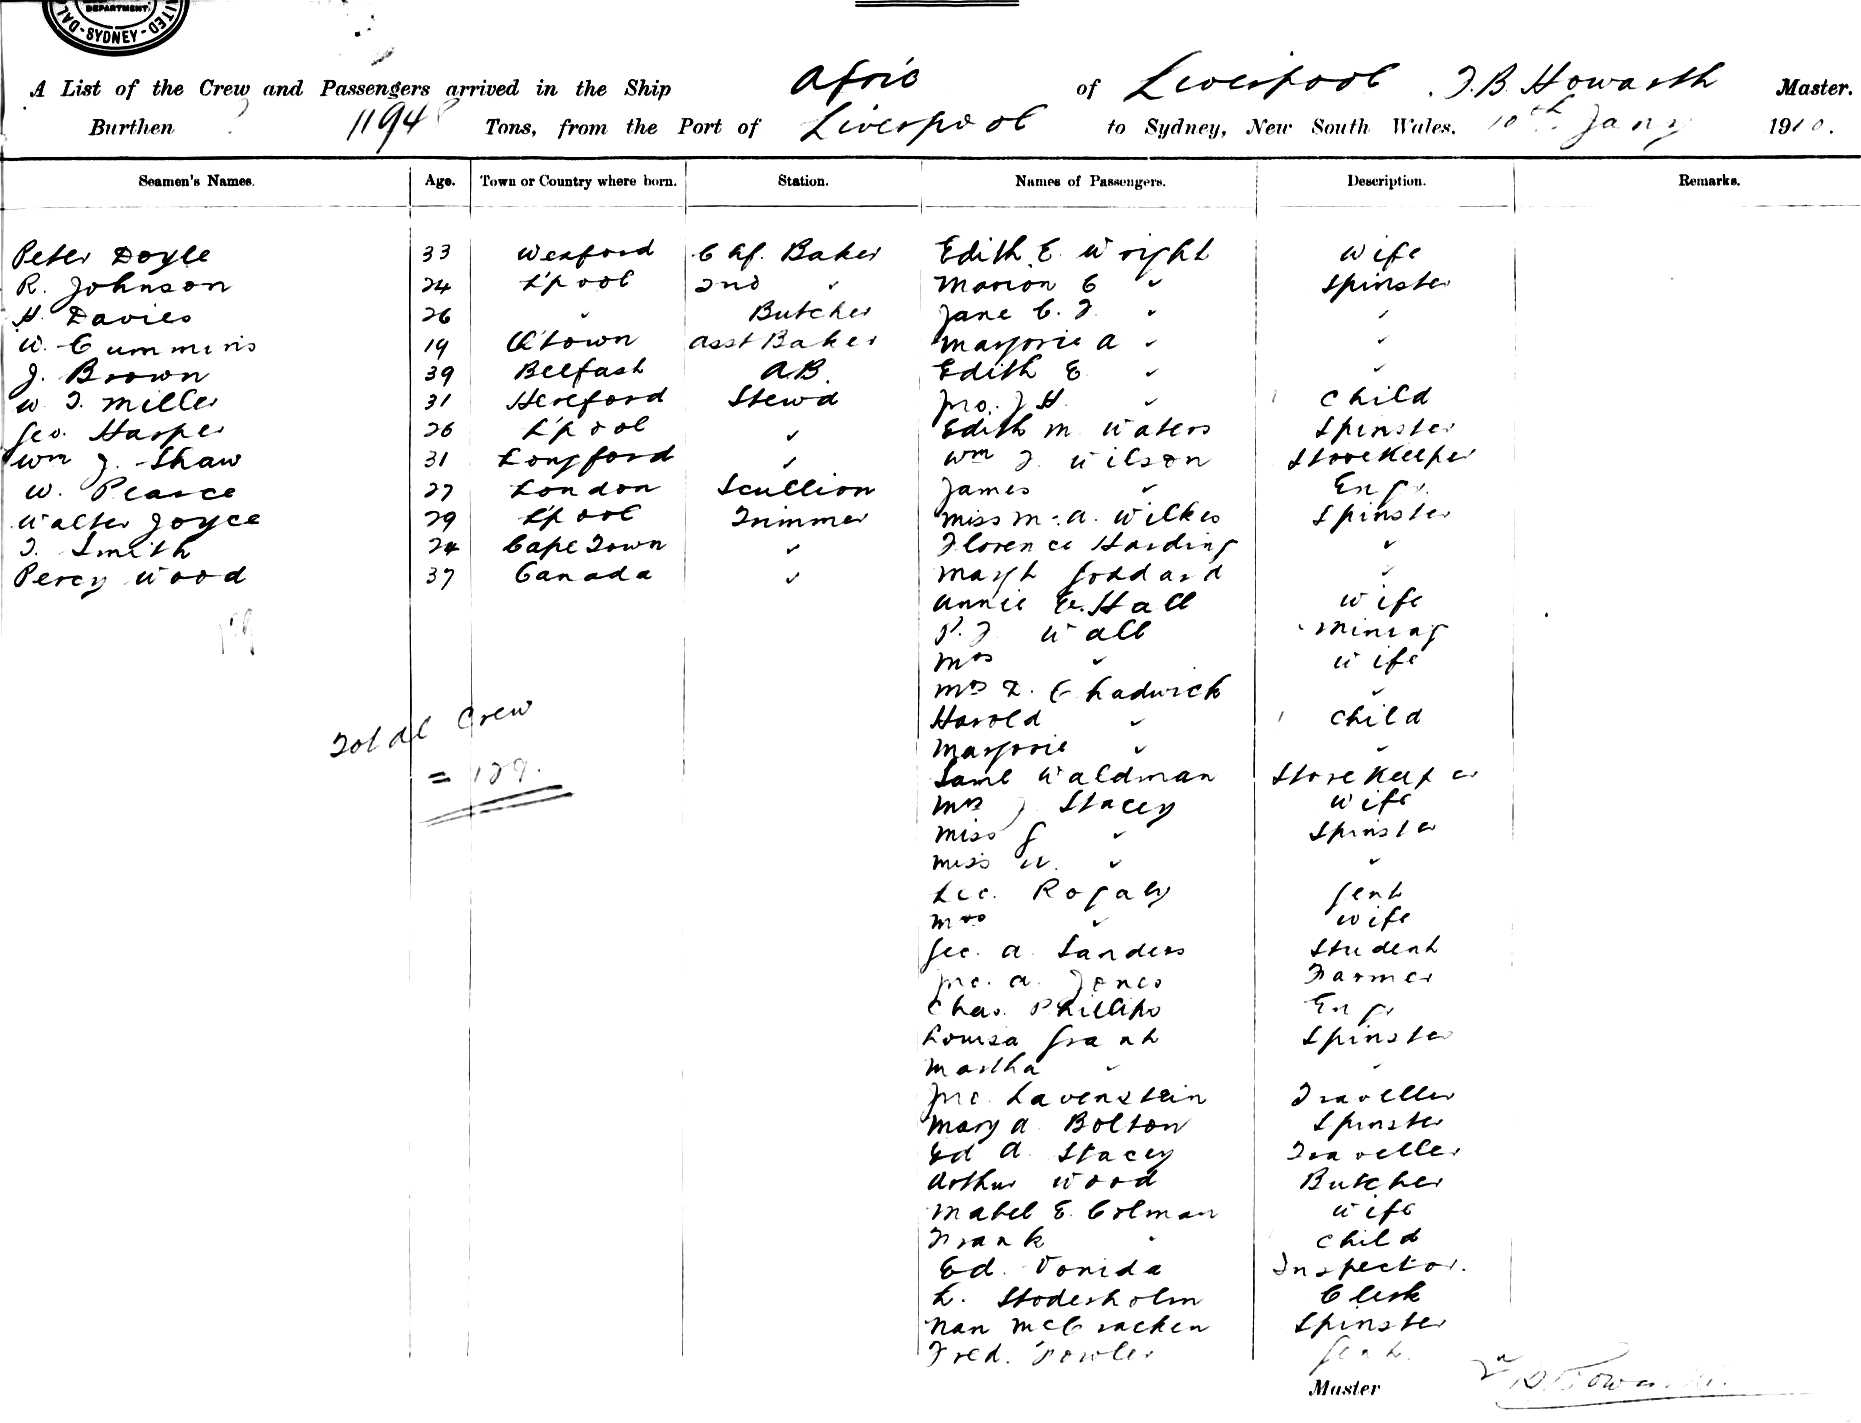 DEPARTMENT.
SYDNEY
A List of the Crew and Passengers arrived in the Ship Afric of Liverpool J.B. Howarth Master.
Burthen 11948 Tons, from the Port of Liverpool to Sydney, New South Wales. 10th Jany 1910.
Seamen's Names. Age. Town or Country where born. Station. Names of Passengers. Description. Remarks.
Peter Doyle 33 Wexford Chf. Baker Edith E. Wright Wife
R. Johnson 24 L'pool 2nd " Marion E " Spinster
H. Davies 26 " Butcher Jane C. J. " "
W. Cummins 19 Q'town Asst Baker Marjorie A " "
J. Brown 39 Belfast A.B. Edith E " "
W. J. Miller 31 Hereford Stewd Jno. J H. " Child
Geo. Harper 26 L'pool " Edith M. Waters Spinster
Wm J. Shaw 31 Longford " Wm J. Wilson StoreKeeper
W. Pearce 27 London Scullion James " Engr.
Walter Joyce 29 L'pool Trimmer Miss M. A. Wilkes Spinster
T. Smith 24 Cape Town " Florence Harding "
Percy Wood 37 Canada " Margt Goddard "
Annie E. Hall Wife
P. J. Wall Mining
Mrs " Wife
Mrs L. Chadwick "
Harold " Child
Marjorie " "
Saml Waldman StoreKeeper
Total Crew
= 129.
Mrs J Stacey Wife
Miss G " Spinster
Miss W. " "
Leo. Rogaly Gent
Mrs " Wife
Geo. A. Sanders Student
Jno. A. Jones Farmer
Chas. Phillips Engr
Louisa Grant Spinster
Martha " "
Jno. Lavenstein Traveller
Mary A. Bolton Spinster
Ed A. Stacey Traveller
Arthur Wood Butcher
Mabel E. Colman Wife
Frank " Child
Ed. Vonida Inspector.
L. Stoderholm Clerk
Nan McCracken Spinster
Fred. Fowler Gent.
Master